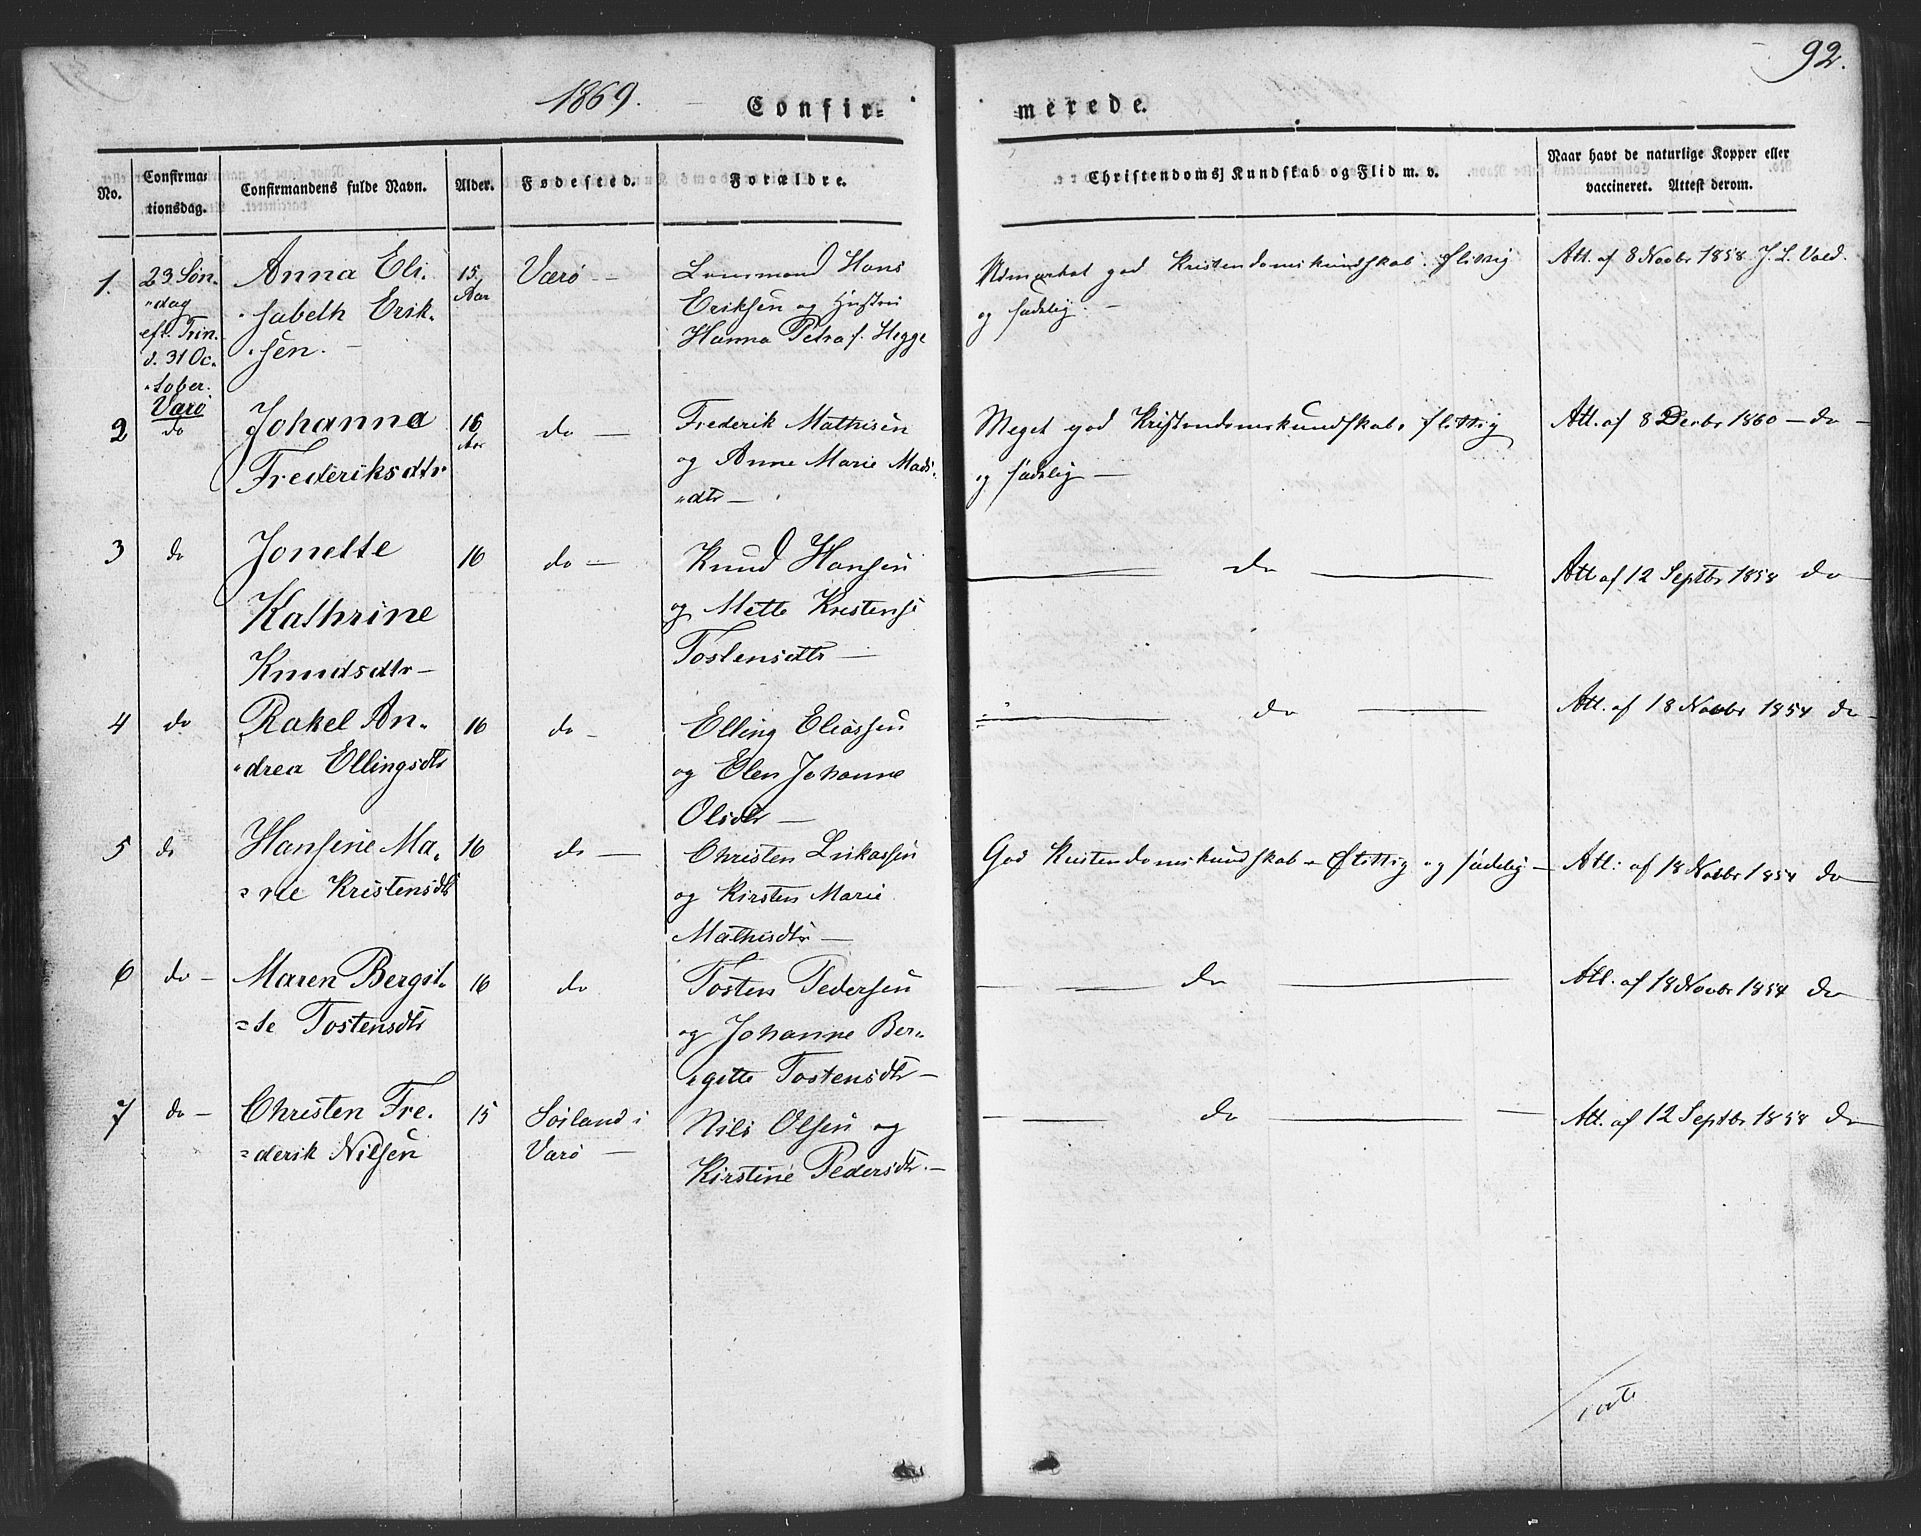 92.
1869. Confir= merede.
No. Confirma- tionsdag. Confirmandens fulde Navn. Alder. Fødested. Forældre. Christendoms Kundskab og Flid m. v. Naar havt de naturlige Kopper eller vaccineret. Attest derom.
1. 23 Søn- Anna Eli. 15 Værø — Lensmand Hans Udmærket god Kristendomskundskab. flittig Att. af 8 Novbr 1858 J. L. Vold.
"dag Aar Eriksen og Hustru og sædelig. —
eft. Trin. sabeth Erik. Hanna Petra f. Hegge
d. 31 Oc- sen. —
tober.
Værø
2 do Johanna 16 do — Frederik Mathisen Meget god Kristendomskundskab, flittig Att. af 8 Decbr 1860 — do —
Frederiksdtr Aar og Anne Marie Mads og sædelig —
"dtr —
3 do Jonette 16 do — Knud Hansen — do — Att af 12 Septbr 1858 do —
Kathrine og Mette Kristense
Knudsdtr — Tostensdtr —
4 do Rakel An- 16 do — Elling Eliassen — do — Att. af 18 Novbr 1854 do —
"drea Ellingsdtr og Elen Johanne
Olsdtr —
5 do Hansine Ma- 16 do — Christen Lukassen God Kristendomskundskab — flittig og sædelig — Att: af 18 Novbr 1854 do —
=rie Kristensdtr og Kirsten Marie
Mathisdtr —
6 do — Maren Bergit- 16 do Tosten Pedersen — do — Att. af 18 Novbr 1854 do
=te Tostensdtr og Johanne Ber-
"gitte Tostensdtr —
7 do — Christen Fre. 15 Søiland i Nils Olsen og — do — Att. af 12 Septbr 1858 do
=derik Nilsen Værø — Kirstine Pedersdtr. —